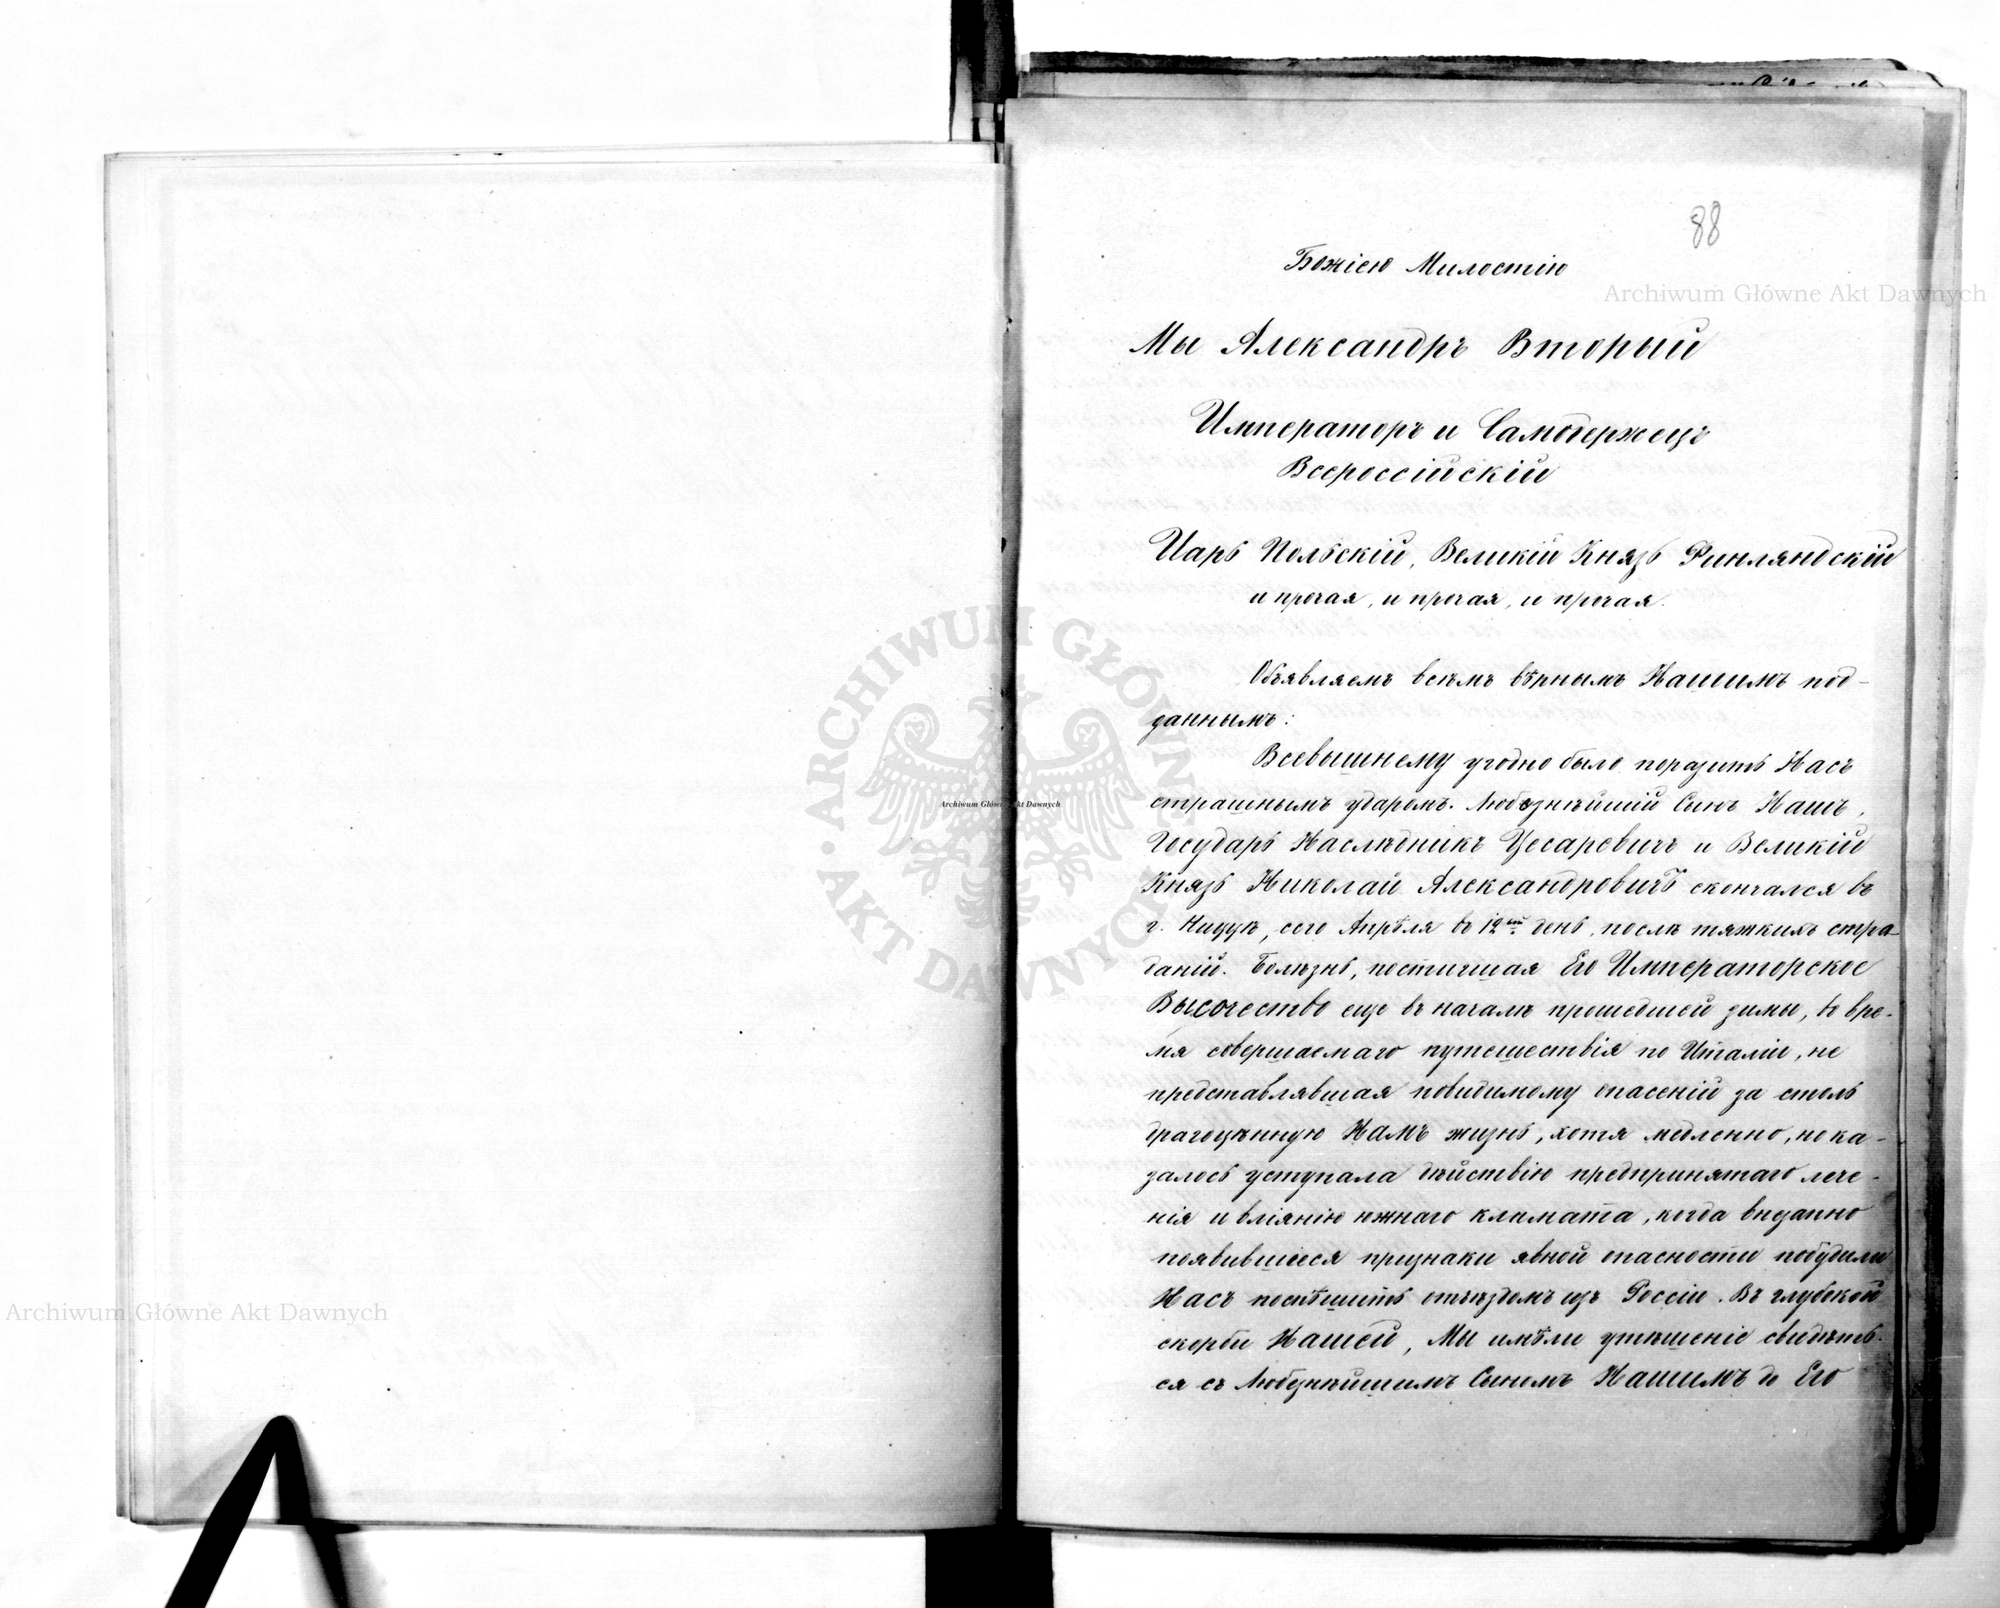 88
Божіею Милостію
Archiwum Główne Akt Dawnych
Мы Александръ Вторый
Императоръ и Самодержецъ
Всероссійскій
Царь Польскій, Великій Князь Финляндскій
и прочая, и прочая, и прочая.
Объявляемъ всѣмъ вѣрнымъ Нашимъ под-
даннымъ:
Всевышнему угодно было поразить Насъ
страшнымъ ударомъ. Любезнѣйшій Сынъ Нашъ,
Государь Наслѣдникъ Цесаревичъ и Великій
Князь Николай Александровичъ скончался въ
г. Ниццѣ, сего Апрѣля въ 12ый день, послѣ тяжкихъ стра-
даній. Болѣзнь, постигшая Его Императорское
Высочество еще въ началѣ прошедшей зимы, во вре-
мя совершаемаго путешествія по Италіи, не
представлявшая повидимому опасеній за столь
драгоцѣнную Намъ жизнь, хотя медленно, но ка-
залось уступала дѣйствію предпринятаго лече-
нія и вліянію южнаго климата, когда внезапно
появившіеся признаки явной опасности побудили
Насъ поспѣшить отъѣздомъ изъ Россіи. Въ глубокой
скорби Нашей, Мы имѣли утѣшеніе свидѣть-
ся съ Любезнѣйшимъ Сыномъ Нашимъ до Его
ARCHIWUM GŁÓWNE AKT DAWNYCH
Archiwum Główne Akt Dawnych
Archiwum Główne Akt Dawnych